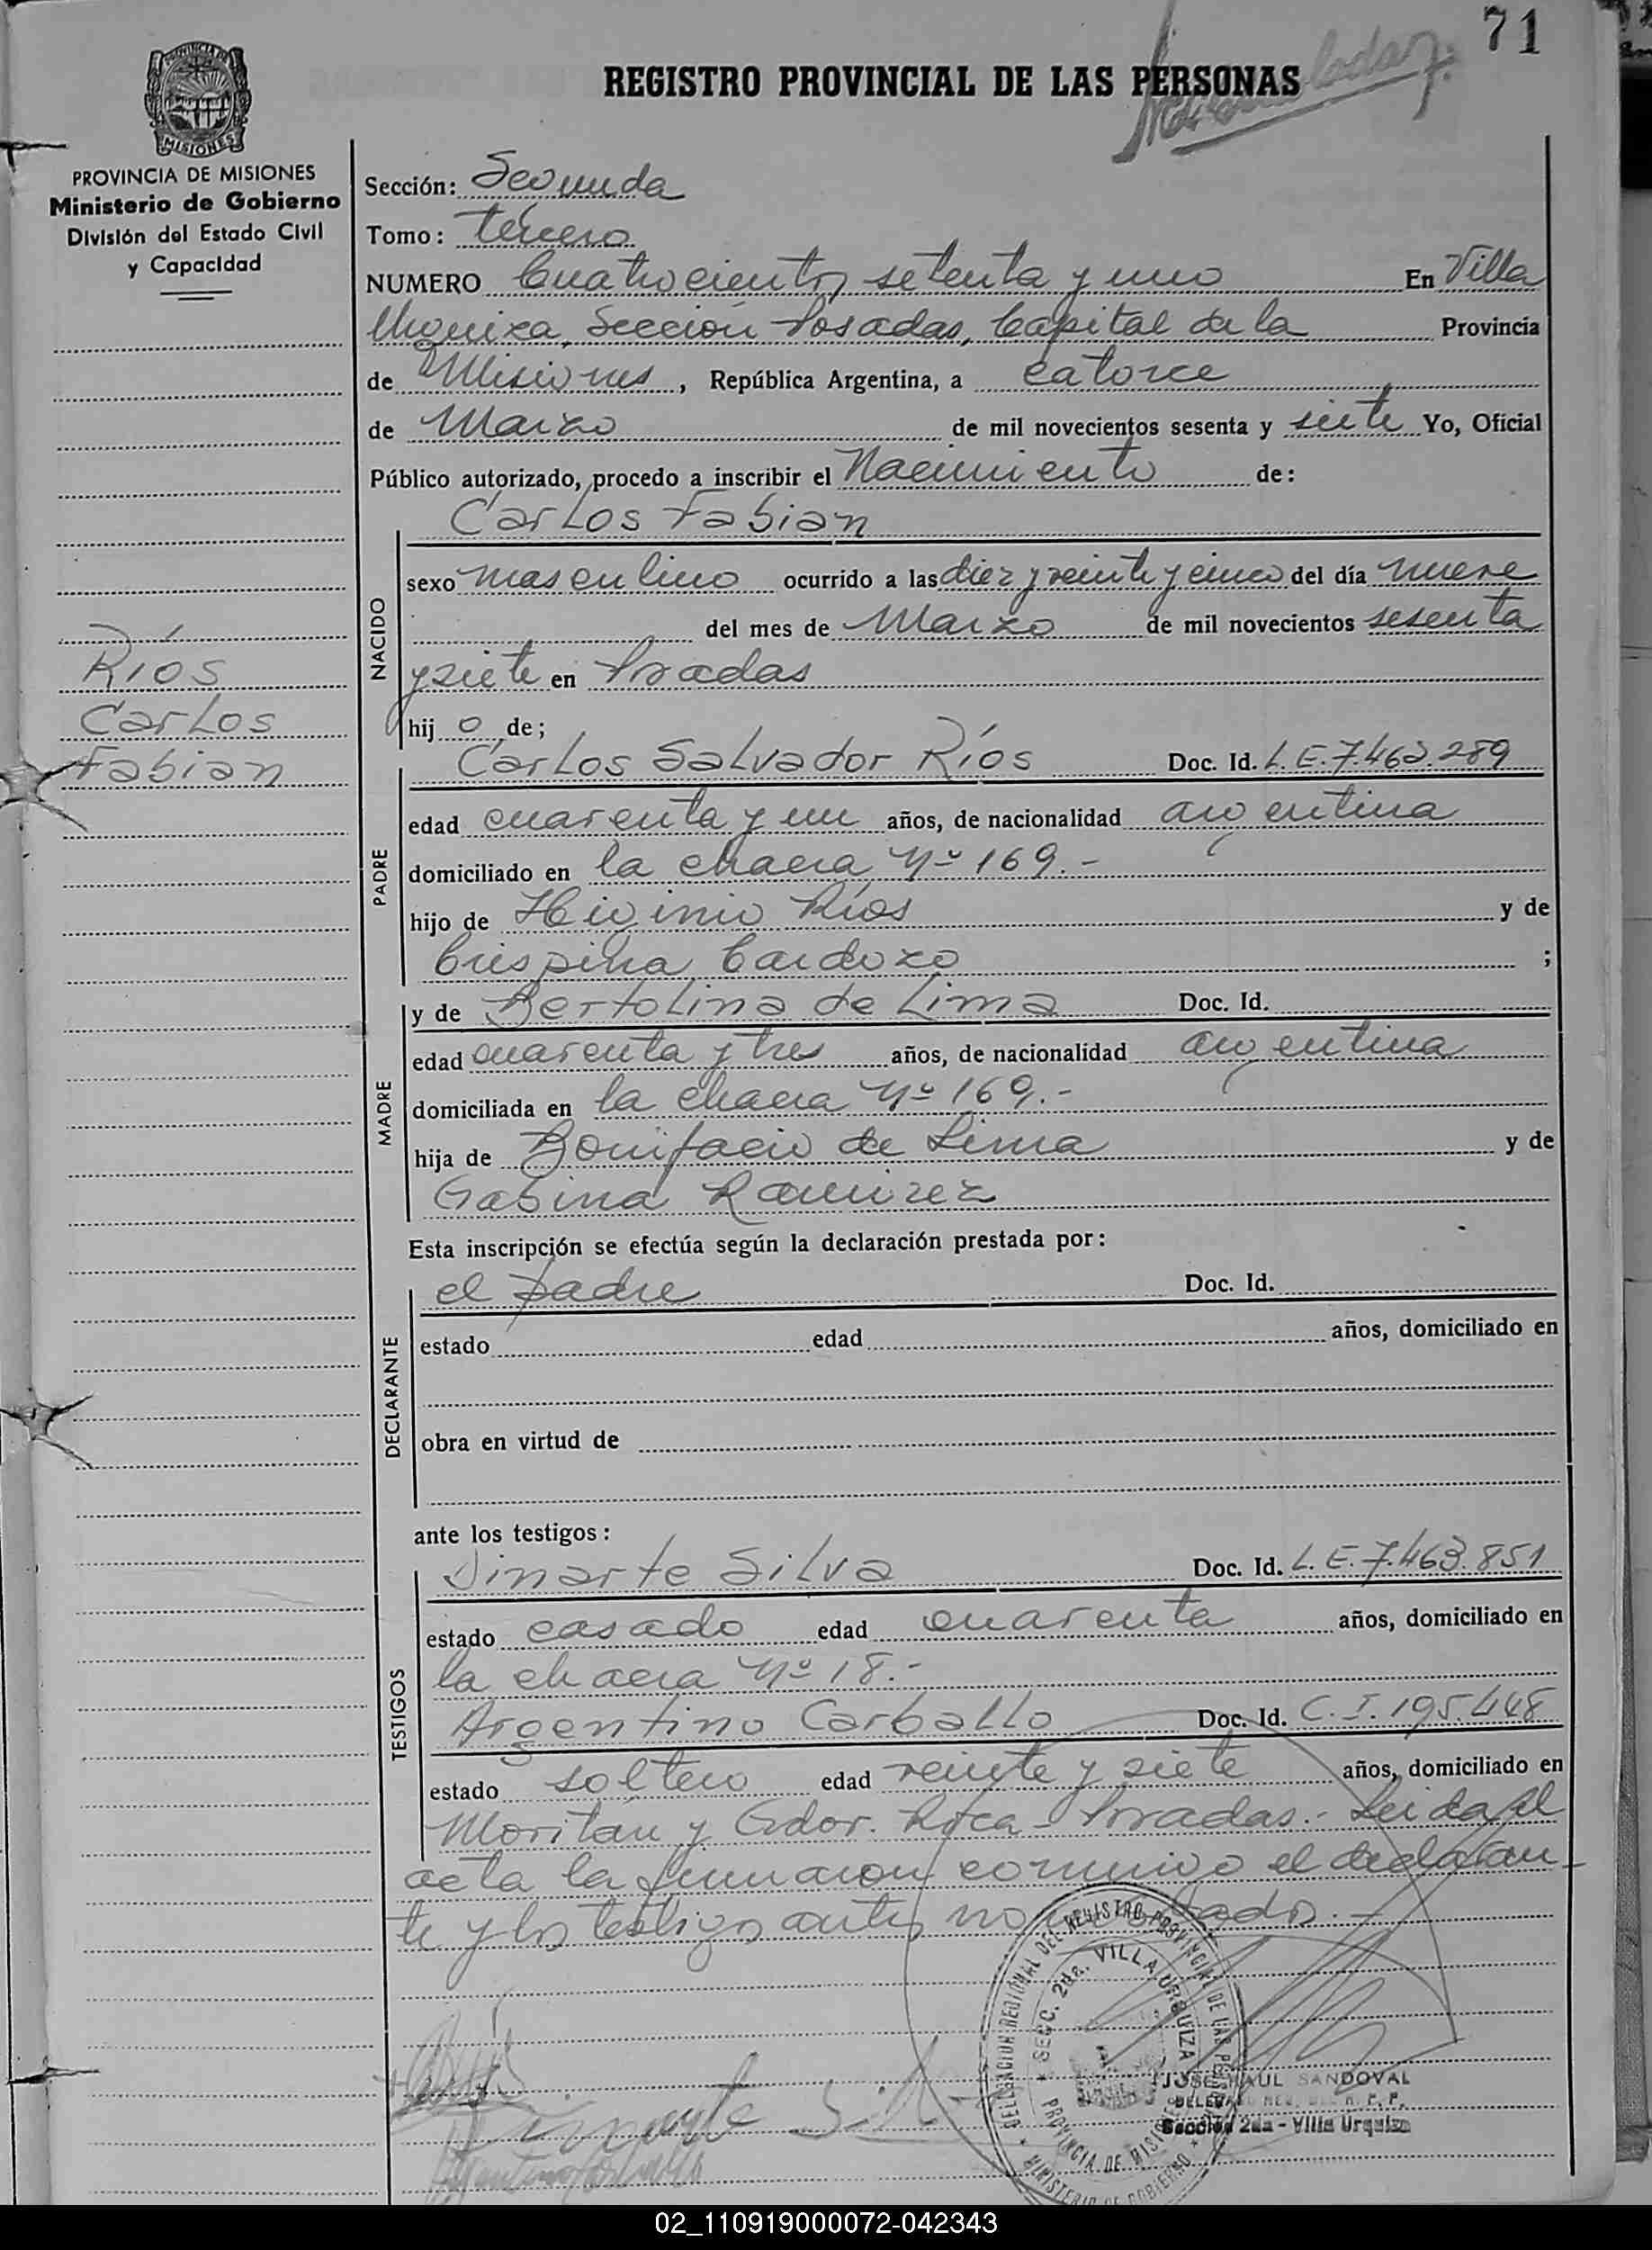 71
REGISTRO PROVINCIAL DE LAS PERSONAS
MISIONES
PROVINCIA DE MISIONES
Ministerio de Gobierno
División del Estado Civil
y Capacidad
Sección: Segunda
Tomo: tercero
NUMERO Cuatrocientos setenta y uno En Villa
Urquiza, Sección Posadas, Capital de la Provincia
de Misiones, República Argentina, a catorce
de Marzo de mil novecientos sesenta y siete Yo, Oficial
Público autorizado, procedo a inscribir el Nacimiento de:
Carlos Fabian
NACIDO
sexo masculino ocurrido a las diez y veinte y cinco del día nueve
del mes de Marzo de mil novecientos sesenta
y siete en Posadas
hijo de;
Ríos
Carlos
Fabian
PADRE
Carlos Salvador Ríos Doc. Id. L.E. 7.462.289
edad cuarenta y un años, de nacionalidad argentina
domiciliado en la chacra Nº 169.-
hijo de Higinio Ríos y de
Crispina Cardozo ;
MADRE
y de Bertolina de Lima Doc. Id.
edad cuarenta y tres años, de nacionalidad argentina
domiciliada en la chacra Nº 169.-
hija de Bonifacio de Lima y de
Gabina Ramirez
Esta inscripción se efectúa según la declaración prestada por:
DECLARANTE
el padre Doc. Id.
estado edad años, domiciliado en
obra en virtud de
ante los testigos:
TESTIGOS
Dinarte Silva Doc. Id. L.E. 7.463.851
estado casado edad cuarenta años, domiciliado en
la chacra Nº 18.-
Argentino Carballo Doc. Id. C.I. 195.448
estado soltero edad veinte y siete años, domiciliado en
Moritán y Gdor. Roca - Posadas.- Leida el
acta la firmaron conmigo el declaran-
te y los testigos antes nombrado.-
DELEGACION REGIONAL DEL REGISTRO PROVINCIAL DE LAS PERSONAS
SECC. 2da. VILLA URQUIZA
PROVINCIA DE MISIONES
MINISTERIO DE GOBIERNO
JOSE RAUL SANDOVAL
Sección 2da - Villa Urquiza
Dinarte Silva
02_110919000072-042343